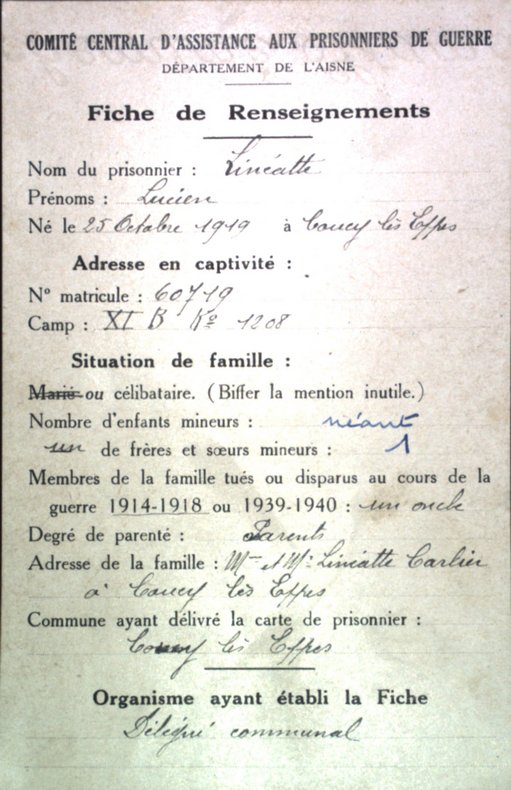 COMITÉ CENTRAL D'ASSISTANCE AUX PRISONNIERS DE GUERRE
DÉPARTEMENT DE L'AISNE
Fiche de Renseignements
Nom du prisonnier : Linéatte
Prénoms : Lucien
Né le 25 Octobre 1919 à Coucy lès Eppes
Adresse en captivité :
N° matricule : 60719
Camp : XI B K° 1208
Situation de famille :
Marié ou célibataire. (Biffer la mention inutile.)
Nombre d'enfants mineurs : néant
un de frères et sœurs mineurs : 1
Membres de la famille tués ou disparus au cours de la
guerre 1914-1918 ou 1939-1940 : un oncle
Degré de parenté : Parents
Adresse de la famille : Mme et Mr Linéatte Carlier
à Coucy lès Eppes
Commune ayant délivré la carte de prisonnier :
Coucy lès Eppes
Organisme ayant établi la Fiche
Délégué communal